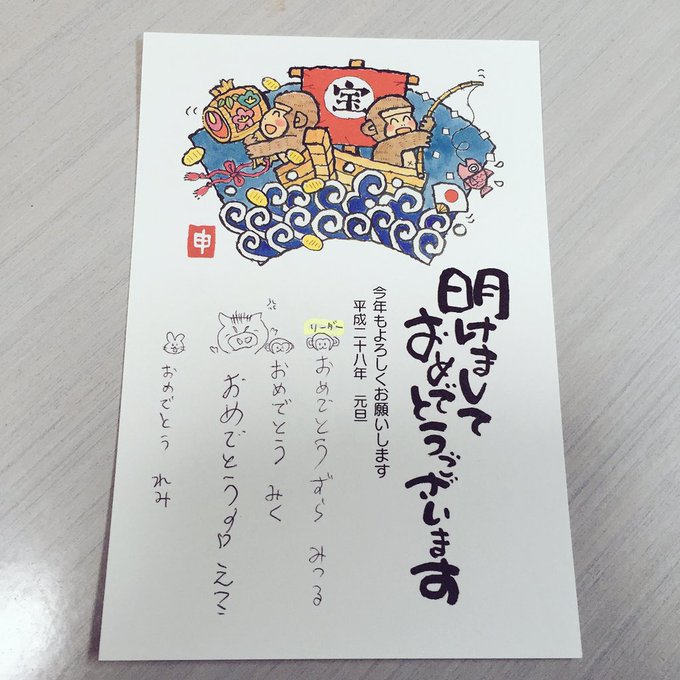 宝
申
明けまして
おめでとうございます
今年もよろしくお願いします
平成二十八年 元旦
リーダー
おめでとうずら みつる
おめでとう みく
おめでとう
おめでとう れみ